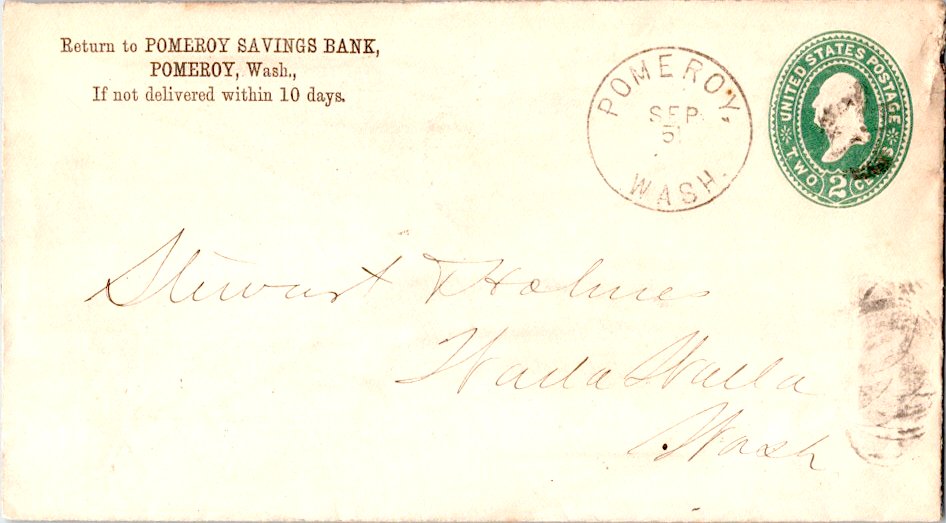 Return to POMEROY SAVINGS BANK,
POMEROY, Wash.,
If not delivered within 10 days.
POMEROY,
SEP
5
WASH.
UNITED STATES POSTAGE
TWO 2 CENTS
Stewart & Holmes
Walla Walla
Wash